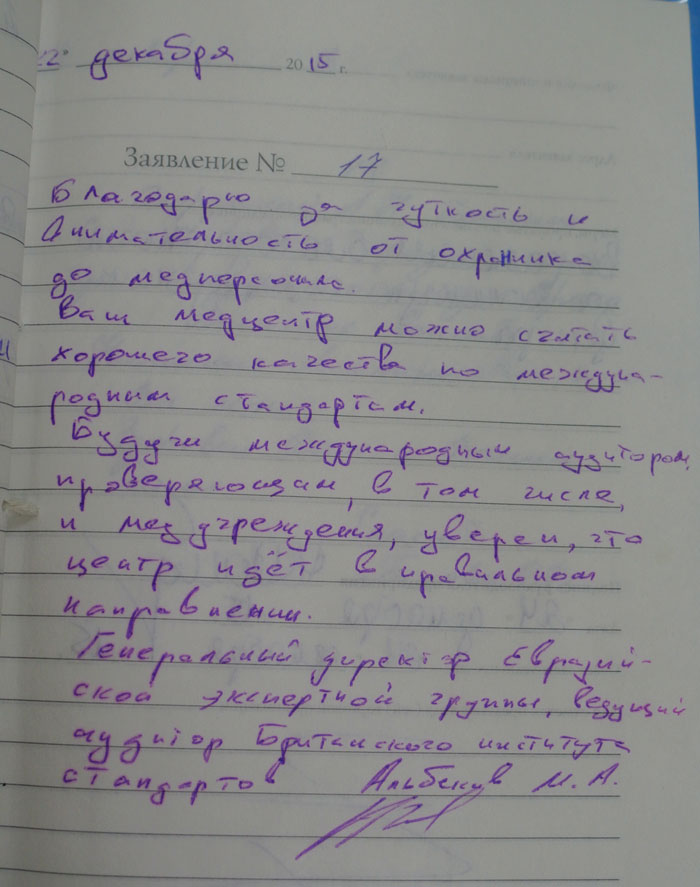 22 декабря 2015 г.
Заявление № 17
Благодарю за чуткость и
внимательность от охранника
до медперсонала.
Ваш медцентр можно считать
хорошего качества по междуна-
родным стандартам.
Будучи международным аудитором,
проверяющим, в том числе,
и медучреждения, уверен, что
центр идёт в правильном
направлении.
Генеральный директор Евразий-
ской экспертной группы, ведущий
аудитор Британского института
стандартов Альбеков М. А.